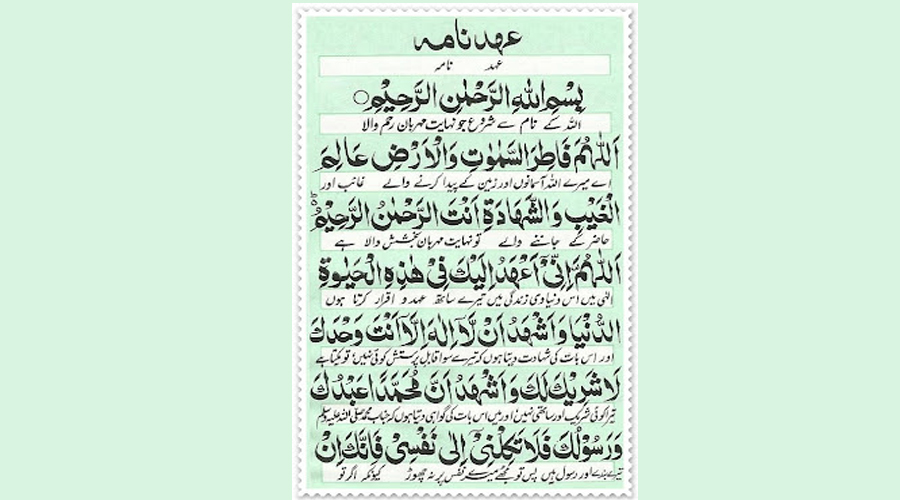 عهد نامہ
عہد نامہ
بِسْمِ اللهِ الرَّحْمٰنِ الرَّحِيْمِ
اللہ کے نام سے شروع جو نہایت مہربان رحم والا
اَللّٰهُمَّ فَاطِرَ السَّمٰوٰتِ وَالْاَرْضِ عَالِمَ
اے میرے اللہ آسمانوں اور زمین کے پیدا کرنے والے غائب اور
الْغَيْبِ وَالشَّهَادَةِ اَنْتَ الرَّحْمٰنُ الرَّحِيْمُ
حاضر کے جاننے والے تو نہایت مہربان بخشش والا ہے
اَللّٰهُمَّ اِنِّيْٓ اَعْهَدُ اِلَيْكَ فِيْ هٰذِهِ الْحَيٰوةِ
الٰہی میں اس دنیاوی زندگی میں تیرے ساتھ عہد و اقرار کرتا ہوں
الدُّنْيَا وَاَشْهَدُ اَنْ لَّآ اِلٰهَ اِلَّآ اَنْتَ وَحْدَكَ
اور اس بات کی شہادت دیتا ہوں کہ تیرے سوا قابل پرستش کوئی نہیں، تو یکتا ہے
لَا شَرِيْكَ لَكَ وَاَشْهَدُ اَنَّ مُحَمَّدًا عَبْدُكَ
تیرا کوئی شریک اور ساجھی نہیں اور میں اس بات کی گواہی دیتا ہوں کہ جناب محمد صلی اللہ علیہ وسلم
وَرَسُوْلُكَ فَلَا تَكِلْنِيْٓ اِلٰى نَفْسِيْ فَاِنَّكَ اِنْ
تیرے بندے اور رسول ہیں پس تو مجھے میرے نفس پر نہ چھوڑ کیونکہ اگر تو